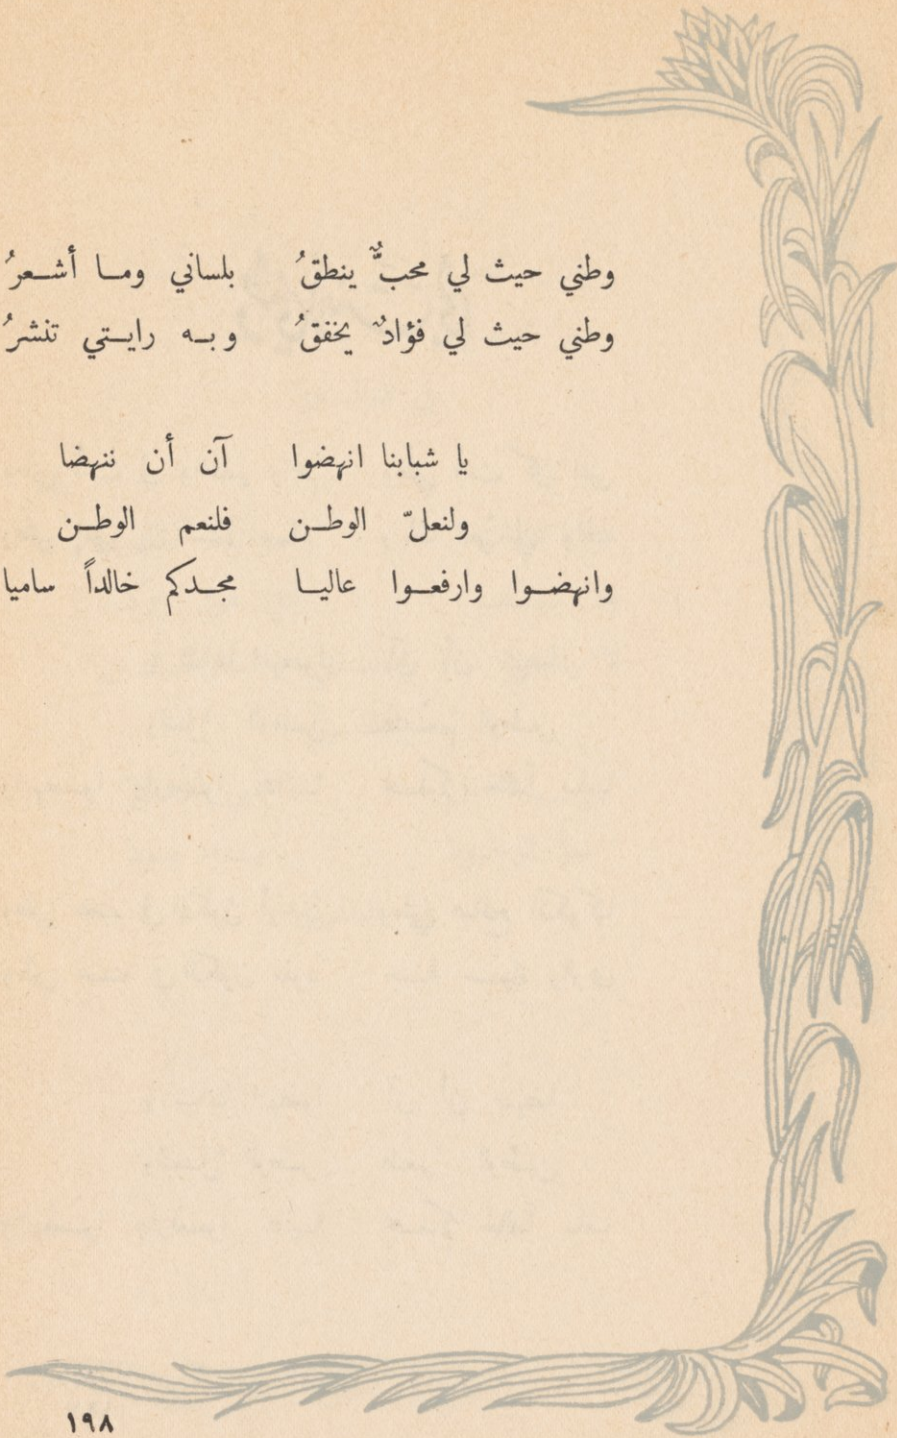 وطني حيث لي محبٌّ ينطقُ بلساني ومـا أشـعرُ
وطني حيث لي فؤادٌ يخفقُ وبـه رايـتي تنشرُ
يا شبابنا انهضوا آن أن ننهضا
ولنعلّ الوطـن فلنعم الوطـن
وانهضـوا وارفعـوا عاليـا مجـدكم خالداً ساميا
١٩٨